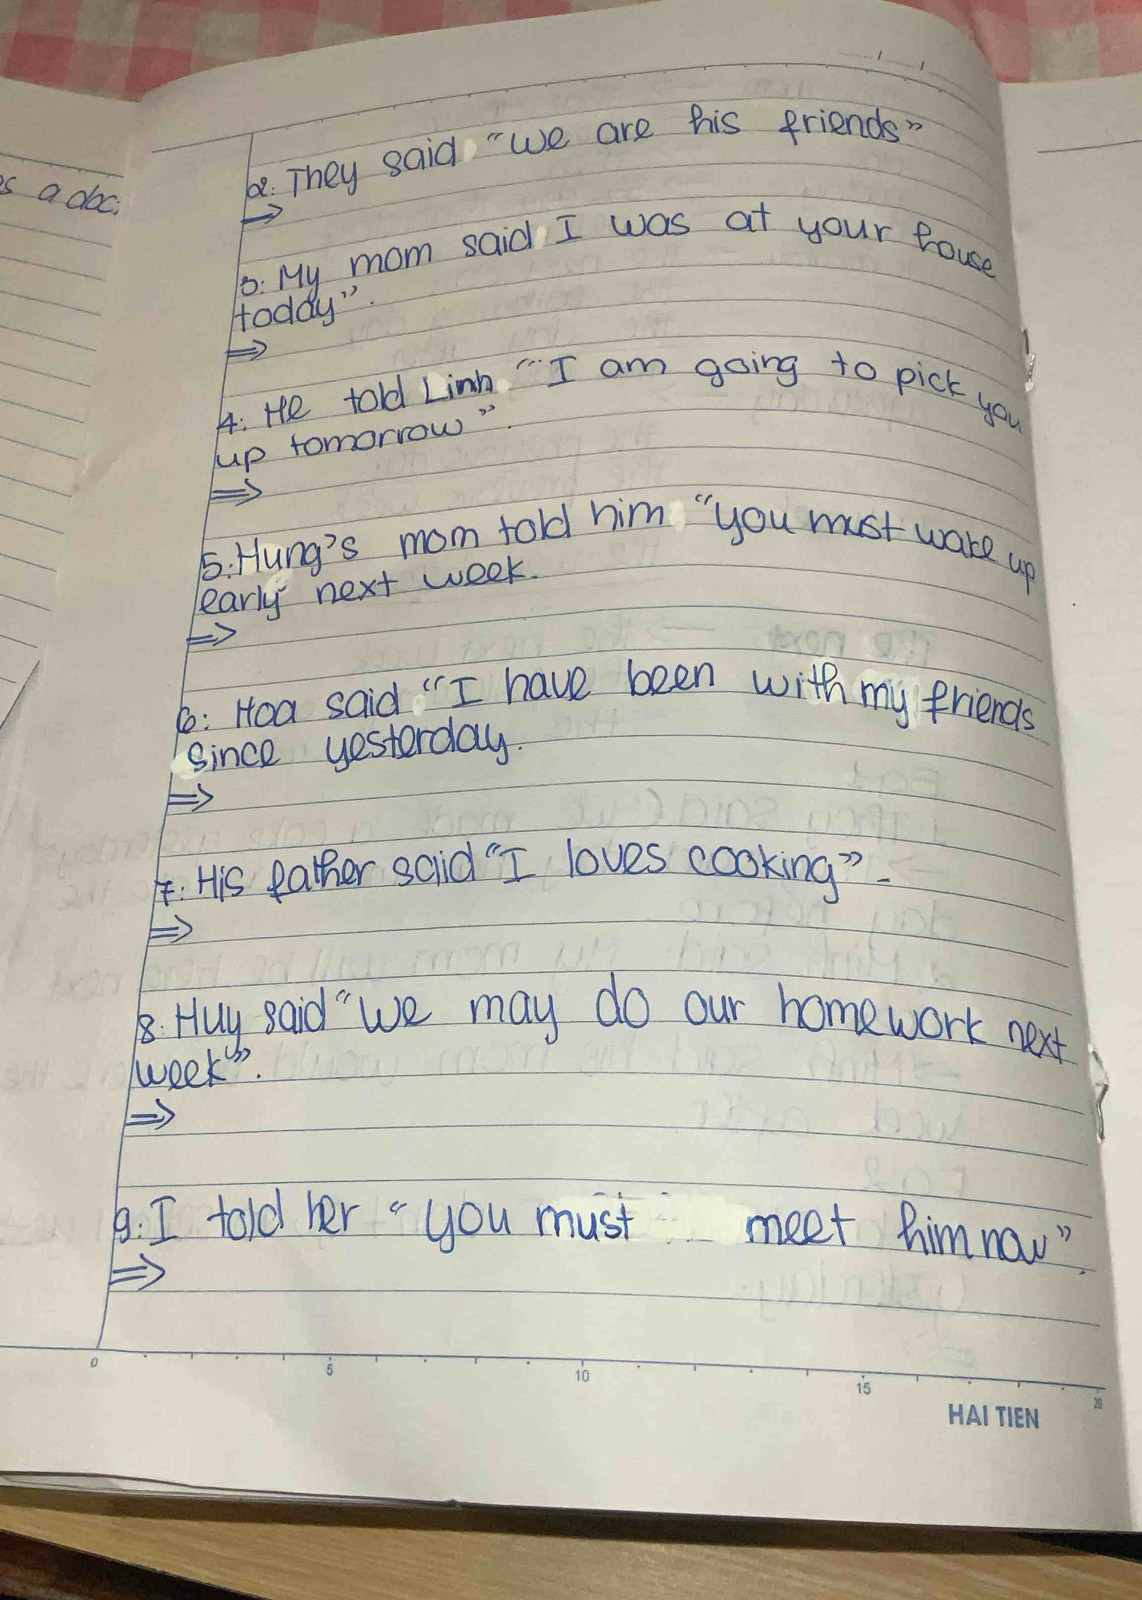 a abc;
2: They said "We are his friends"
=>
3: My mom said I was at your house
today".
=>
4: He told Linh "I am going to pick you
up tomorrow".
=>
5: Hung's mom told him "you must wake up
early next week.
=>
6: Hoa said "I have been with my friends
since yesterday.
=>
7: His father said "I loves cooking".
=>
8. Huy said "We may do our homework next
week".
=>
9: I told her "you must meet him now".
=>
0 5 10 15 20
HAI TIEN